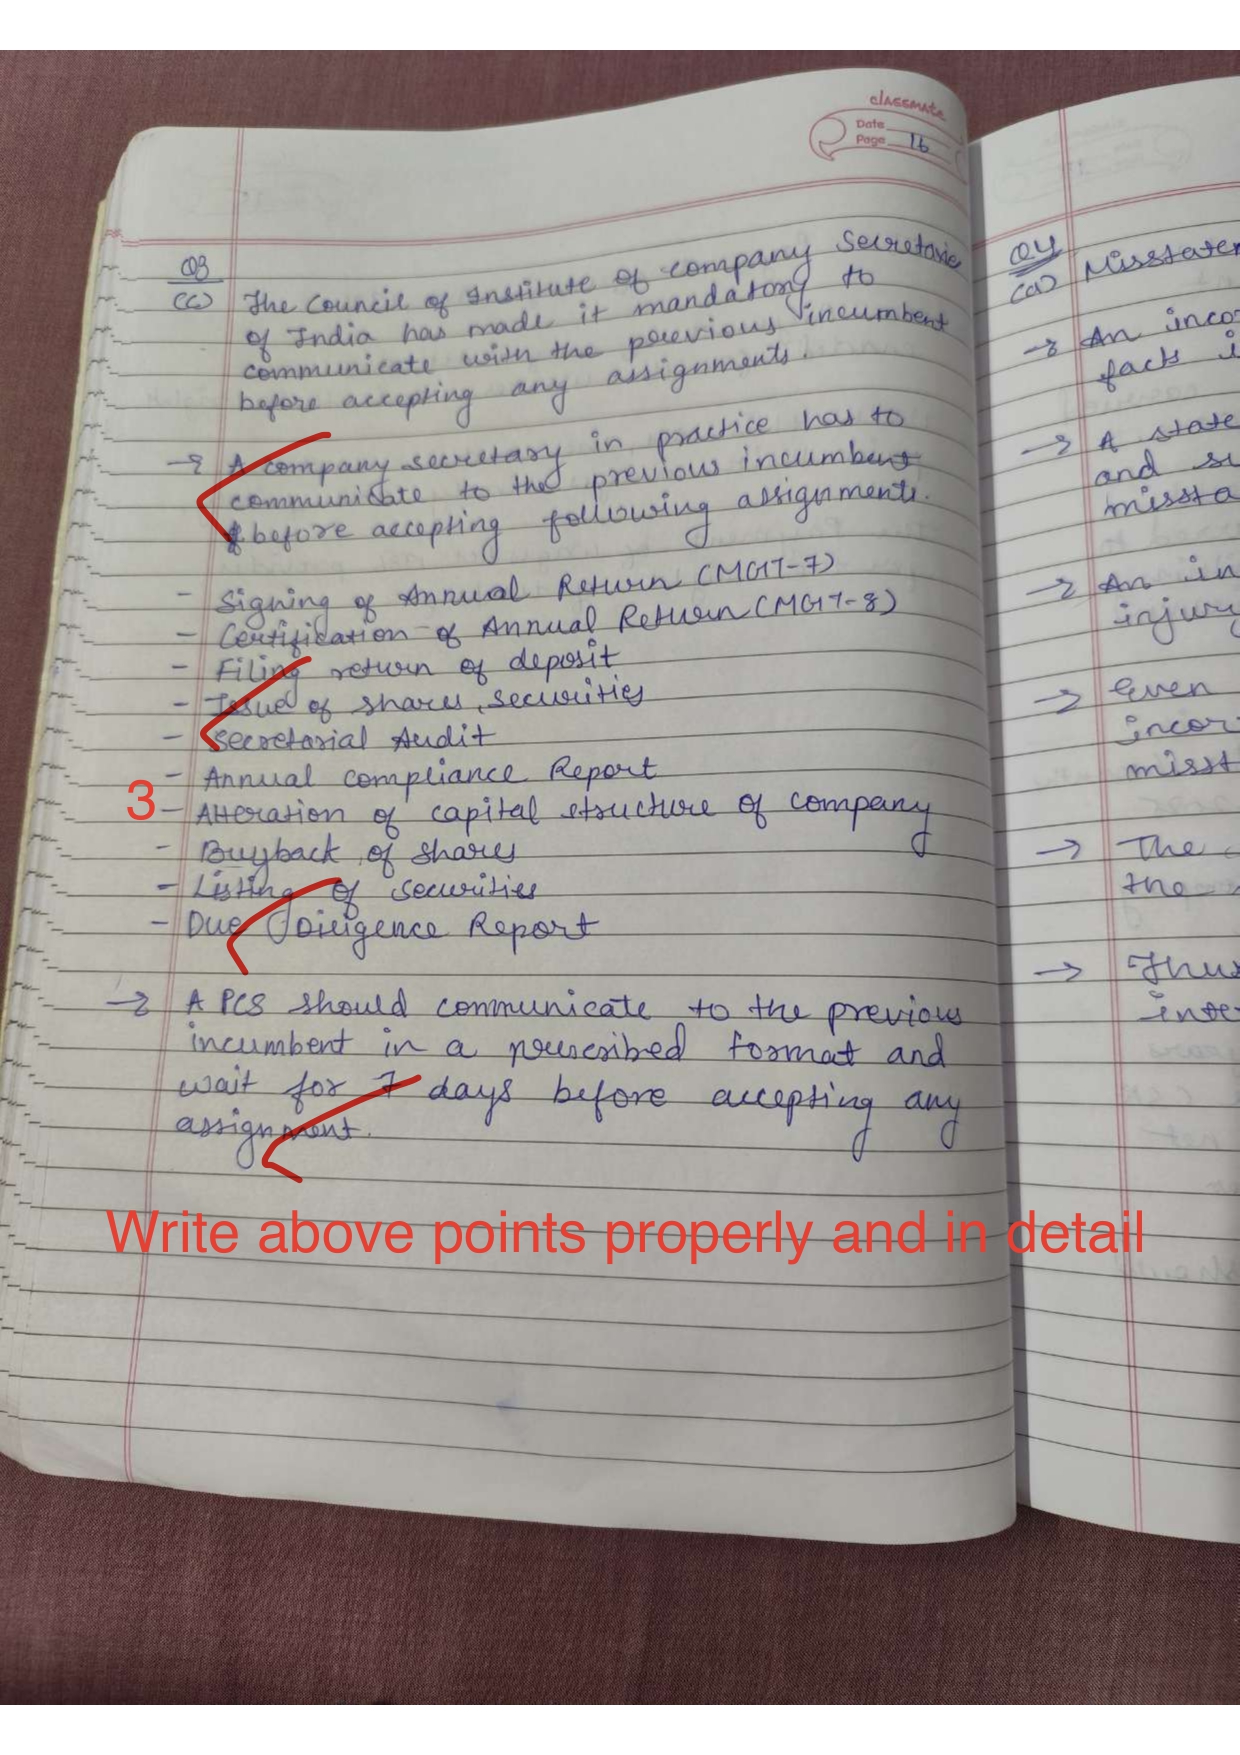 classmate
Date
Page 16
Q3
(c) The Council of Institute of company Secretarie
of India has made it mandatory to
communicate with the previous incumbent
before accepting any assignments.
→ A company secretary in practice has to
communicate to the previous incumbent
before accepting following assignments.
- Signing of Annual Return (MGT-7)
- Certification of Annual Return (MGT-8)
- Filing return of deposit
- Issue of shares, securities
- Secretarial Audit
- Annual compliance Report
3
- Alteration of capital structure of company
- Buyback of shares
- Listing of securities
- Due Diligence Report
→ A PCS should communicate to the previous
incumbent in a prescribed format and
wait for 7 days before accepting any
assignment.
Write above points properly and in detail
Q4
(a) Misstatem
→ An inco
fact i
→ A state
and su
missta
→ An in
injury
→ Even
incor
misst
→ The
the
→ Thus
inte